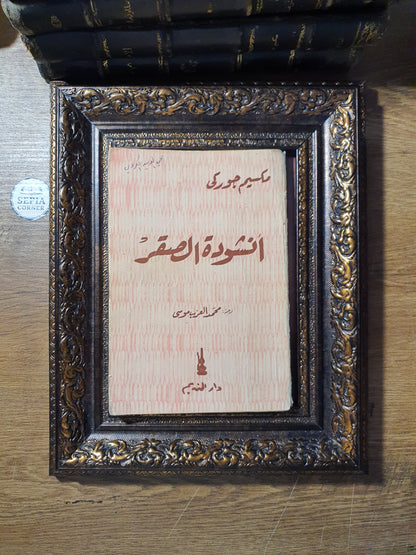 SEPIA
CORNER
مكسيم جوركى
أنشودة الصقر
محمد العزب موسى
دار النديم